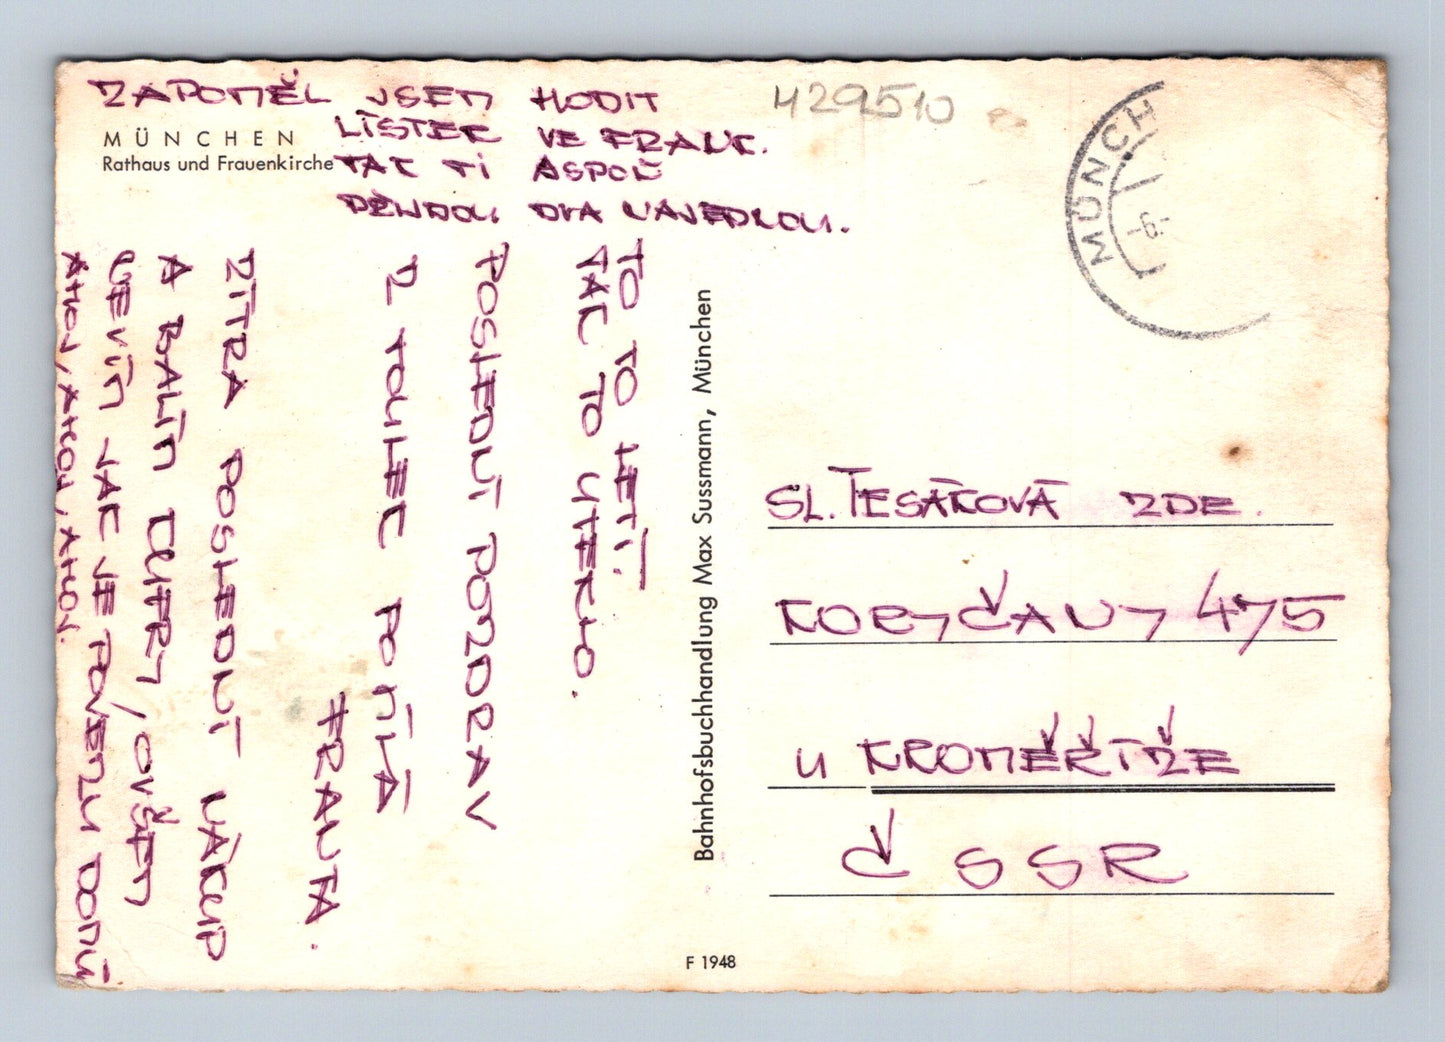 ZAPOMĚL JSEM HODIT
LÍSTEK VE FRANK.
TAK TI ASPOŇ
DVA NAJEDNOU.
MÜNCHEN
Rathaus und Frauenkirche
429510
MÜNCH
TO TO LETÍ.
TAK TO UTEKLO.
POSLEDNÍ POZDRAV
Z TOULEK PO
FRANTA.
ZÍTRA POSLEDNÍ NÁKUP
A BALÍM KUFRY, OVŠEM
NEVÍM JAK JE POVEZU DOMŮ
AHOJ, AHOJ, AHOJ, AHOJ.
Bahnhofsbuchhandlung Max Sussmann, München
F 1948
SL. TESÁKOVÁ ZDE.
KORYČANY 475
U KROMĚŘÍŽE
ČSSR